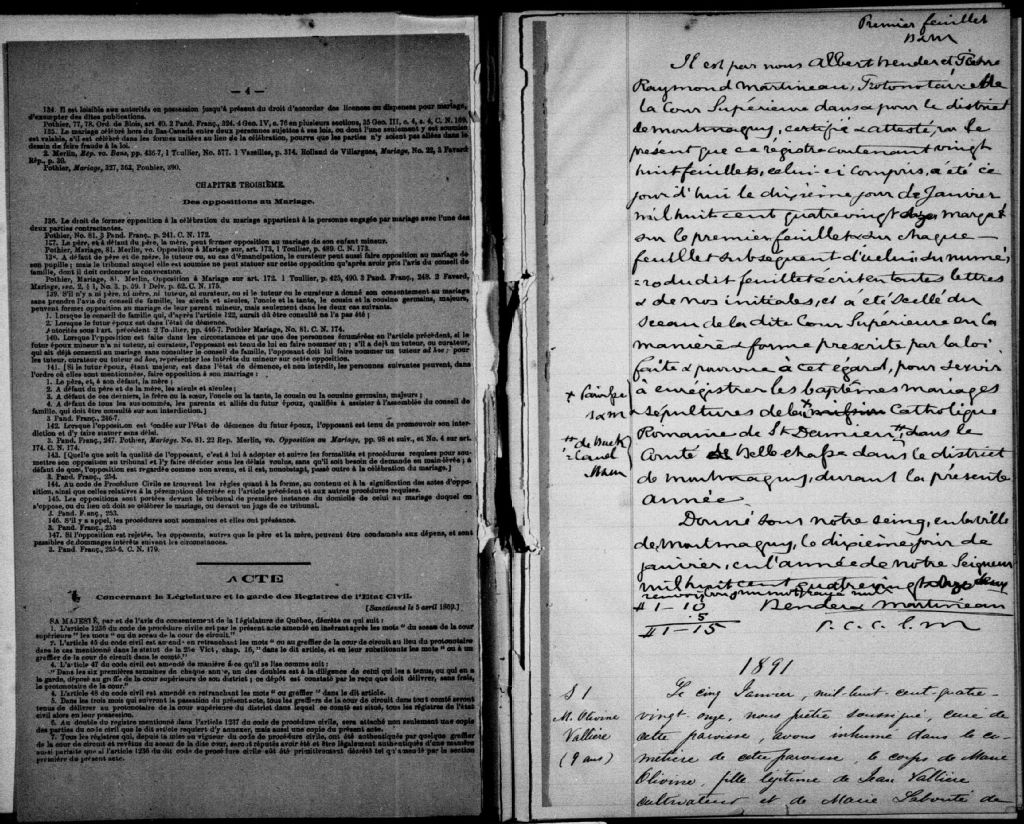 — 4 —
134. Il est loisible aux autorités en possession jusqu'à présent du droit d'accorder des licences ou dispenses pour mariage,
d'exempter des dites publications.
Pothier, 77, 78. Ord. de Blois, art 40. 2 Pand. Franç., 324. 4 Geo. IV, c. 76 en plusieurs sections, 35 Geo. III, c. 4, s. 4, C. N. 169.
135. Le mariage célébré hors du Bas-Canada entre deux personnes sujettes à ses lois, ou dont l'une seulement y est soumise
est valable, s'il est célébré dans les formes usitées au lieu de la célébration, pourvu que les parties n'y soient pas allées dans le
dessein de faire fraude à la loi.
2. Merlin, Rép. vo. Bans, pp. 436-7, 1 Toullier, No. 577. 1 Vazeilles, p. 314. Rolland de Villargues, Mariage, No. 22, 3 Favard
Rép., p. 30.
Pothier, Mariage, 327, 363, Pouhier, 890.
CHAPITRE TROISIÈME.
Des oppositions au Mariage.
136. Le droit de former opposition à la célébration du mariage appartient à la personne engagée par mariage avec l'une des
deux parties contractantes.
Pothier, No. 81, 3 Pand. Franç., p. 241. C. N. 172.
137. Le père, et à défaut du père, la mère, peut former opposition au mariage de son enfant mineur.
Pothier, Mariage, 81. Merlin, vo. Opposition à Mariage sur, art. 173, 1 Toullier, p. 489. C. N. 173.
138. A défaut de père et de mère, le tuteur ou, au cas d'émancipation, le curateur peut aussi faire opposition au mariage de
son pupille; mais le tribunal auquel elle est soumise ne peut statuer sur cette opposition qu'après avoir pris l'avis du conseil de
famille, dont il doit ordonner la convocation.
Pothier, Mariage, 81. Merlin, Opposition à Mariage sur art. 172. 1 Toullier, p. 425, 490. 3 Pand. Franç., 248. 2 Favard,
Mariage, sec. 2, § 1, No. 3. p. 59. 1 Delv. p. 62. C. N. 175.
139. S'il n'y a ni père, ni mère, ni tuteur, ni curateur, ou si le tuteur ou le curateur a donné son consentement au mariage
sans prendre l'avis du conseil de famille, les aïeuls et aïeules, l'oncle et la tante, le cousin et la cousine germains, majeurs,
peuvent former opposition au mariage de leur parent mineur, mais seulement dans les deux cas suivants.
1. Lorsque le conseil de famille qui, d'après l'article 122, aurait dû être consulté ne l'a pas été;
2. Lorsque le futur époux est dans l'état de démence.
Autorités sous l'art. précédent 2 Toullier, pp. 486-7. Pothier Mariage, No. 81. C. N. 174.
140. Lorsque l'opposition est faite dans les circonstances et par une des personnes énumérées en l'article précédent, si le
futur époux mineur n'a ni tuteur, ni curateur, l'opposant est tenu de lui en faire nommer un; s'il a déjà un tuteur, ou curateur,
qui ait déjà consenti au mariage sans consulter le conseil de famille, l'opposant doit lui faire nommer un tuteur ad hoc: pour
les tuteur, curateur ou tuteur ad hoc, représenter les intérêts du mineur sur cette opposition.
141. [Si le futur époux, étant majeur, est dans l'état de démence, et non interdit, les personnes suivantes peuvent, dans
l'ordre où elles sont mentionnées, faire opposition à son mariage:
1. Le père, et, à son défaut, la mère;
2. A défaut du père et de la mère, les aïeuls et aïeules;
3. A défaut de ces derniers, le frère ou la sœur, l'oncle ou la tante, le cousin ou la cousine germains, majeurs;
4. A défaut de tous les sus-nommés, les parents et alliés du futur époux, qualifiés à assister à l'assemblée du conseil de
famille, qui doit être consulté sur son interdiction.]
3 Pand. Franç., 246-7.
142. Lorsque l'opposition est fondée sur l'état de démence du futur époux, l'opposant est tenu de promouvoir son interdiction
et d'y faire statuer sans délai.
3. Pand. Franç., 247. Pothier, Mariage. No. 81. 22 Rep. Merlin, vo. Opposition au Mariage, pp. 98 et suiv., et No. 4 sur art.
174. C. N. 174.
143. [Quelle que soit la qualité de l'opposant, c'est à lui à adopter et suivre les formalités et procédures requises pour soumettre
son opposition au tribunal et l'y faire décider sous les délais voulus, sans qu'il soit besoin de demande en main-levée; à
défaut de quoi, l'opposition est regardée comme non avenue, et il est, nonobstant, passé outre à la célébration du mariage.]
3. Pand. Franç., 254.
144. Au code de Procédure Civile se trouvent les règles quant à la forme, au contenu et à la signification des actes d'opposition,
ainsi que celles relatives à la péremption décrétée en l'article précédent et aux autres procédures requises.
145. Les oppositions sont portées devant le tribunal de première instance du domicile de celui au mariage duquel on
s'oppose, ou du lieu où doit se célébrer le mariage, ou devant un juge de ce tribunal.
3. Pand. Franç., 253.
146. S'il y a appel, les procédures sont sommaires et elles ont préséance.
3. Pand. Franç., 253
147. Si l'opposition est rejetée, les opposants, autres que le père et la mère, peuvent être condamnés aux dépens, et sont
passibles de dommages intérêts suivant les circonstances.
3. Pand. Franç., 255-6. C. N. 179.
ACTE
Concernant la Législature et la garde des Registres de l'Etat Civil.
[Sanctionné le 5 avril 1869.]
SA MAJESTÉ, par et de l'avis du consentement de la Législature de Québec, décrète ce qui suit:
1. L'article 1236 du code de procédure civile est par le présent acte amendé en insérant après les mots "du sceau de la cour
supérieure" les mots "ou du sceau de la cour de circuit."
2. L'article 45 du code civil est amendé en retranchant les mots "ou au greffier de la cour de circuit au lieu du protonotaire
dans le cas mentionné dans le statut de la 25e Vict., chap. 16," dans le dit article, et en leur substituant les mots "ou à un
greffier de la cour de circuit dans le comté."
3. L'article 47 du code civil est amendé de manière à ce qu'il se lise comme suit:
"Dans les six premières semaines de chaque année, un des doubles est à la diligence de celui qui les a tenus, ou qui en a
la garde, déposé au greffe de la cour supérieure de son district; ce dépôt est constaté par le reçu que doit délivrer, sans frais,
le protonotaire de la cour."
4. L'article 48 du code civil est amendé en retranchant les mots "ou greffier" dans le dit article.
5. Dans les trois mois qui suivront la passation du présent acte, tous les greffiers de la cour de circuit dans tout comté seront
tenus de délivrer au protonotaire de la cour supérieure du district dans lequel ce comté est situé, tous les registres de l'état
civil alors en leur possession.
6. Au double du registre mentionné dans l'article 1237 du code de procédure civile, sera attaché non seulement une copie
des parties du code civil que le dit article requiert d'y annexer, mais aussi une copie du présent acte.
7. Tous les registres qui, depuis la mise en vigueur du code de procédure civile, ont été authentiqués par quelque greffier
de la cour de circuit et revêtus du sceau de la dite cour, seront réputés avoir été et être légalement authentiqués d'une manière
aussi parfaite que si l'article 1236 du dit code de procédure civile eût été primitivement décrété tel qu'amendé par la section
première du présent acte.
Premier feuillet
B & M
Il est par nous Albert Bender et Pierre
Raymond Martineau, Protonotaire de
la Cour Supérieure dans & pour le district
de Montmagny, certifié & attesté, par le
présent que ce registre contenant vingt
huit feuillets, celui-ci compris, a été ce
jour d'hui le dixième jour de Janvier
mil huit cent quatre vingt onze marqué
sur le premier feuillet & sur chaque
feuillet subséquent d'icelui du numé-
ro du dit feuillet écrit en toutes lettres
& de nos initiales, et a été scellé du
sceau de la dite Cour Supérieure en la
manière & forme prescrite par la loi
faite & pourvue à cet égard, pour servir
à enrégistrer les baptêmes mariages
& sépultures de la mission Catholique
Romaine de St Damien, dans le
Comté de Bellechasse dans le district
de Montmagny, durant la présente
année
x Paroisse
B & M
# de Buck
land
B & M
Donné sous notre seing, en la ville
de Montmagny, le dixième jour de
janvier, en l'année de notre Seigneur
mil huit cent quatre vingt onze
# 1-10
5
# 1-15
Bender & Martineau
P. C. S. M
1891
S 1
M. Olivine
Vallière
(9 ans)
Le cinq Janvier, mil-huit-cent-quatre-
vingt onze, nous prêtre soussigné, curé de
cette paroisse, avons inhumé dans le ci-
metière de cette paroisse, le corps de Marie
Olivine, fille légitime de Jean Vallière
cultivateur et de Marie Labonté de